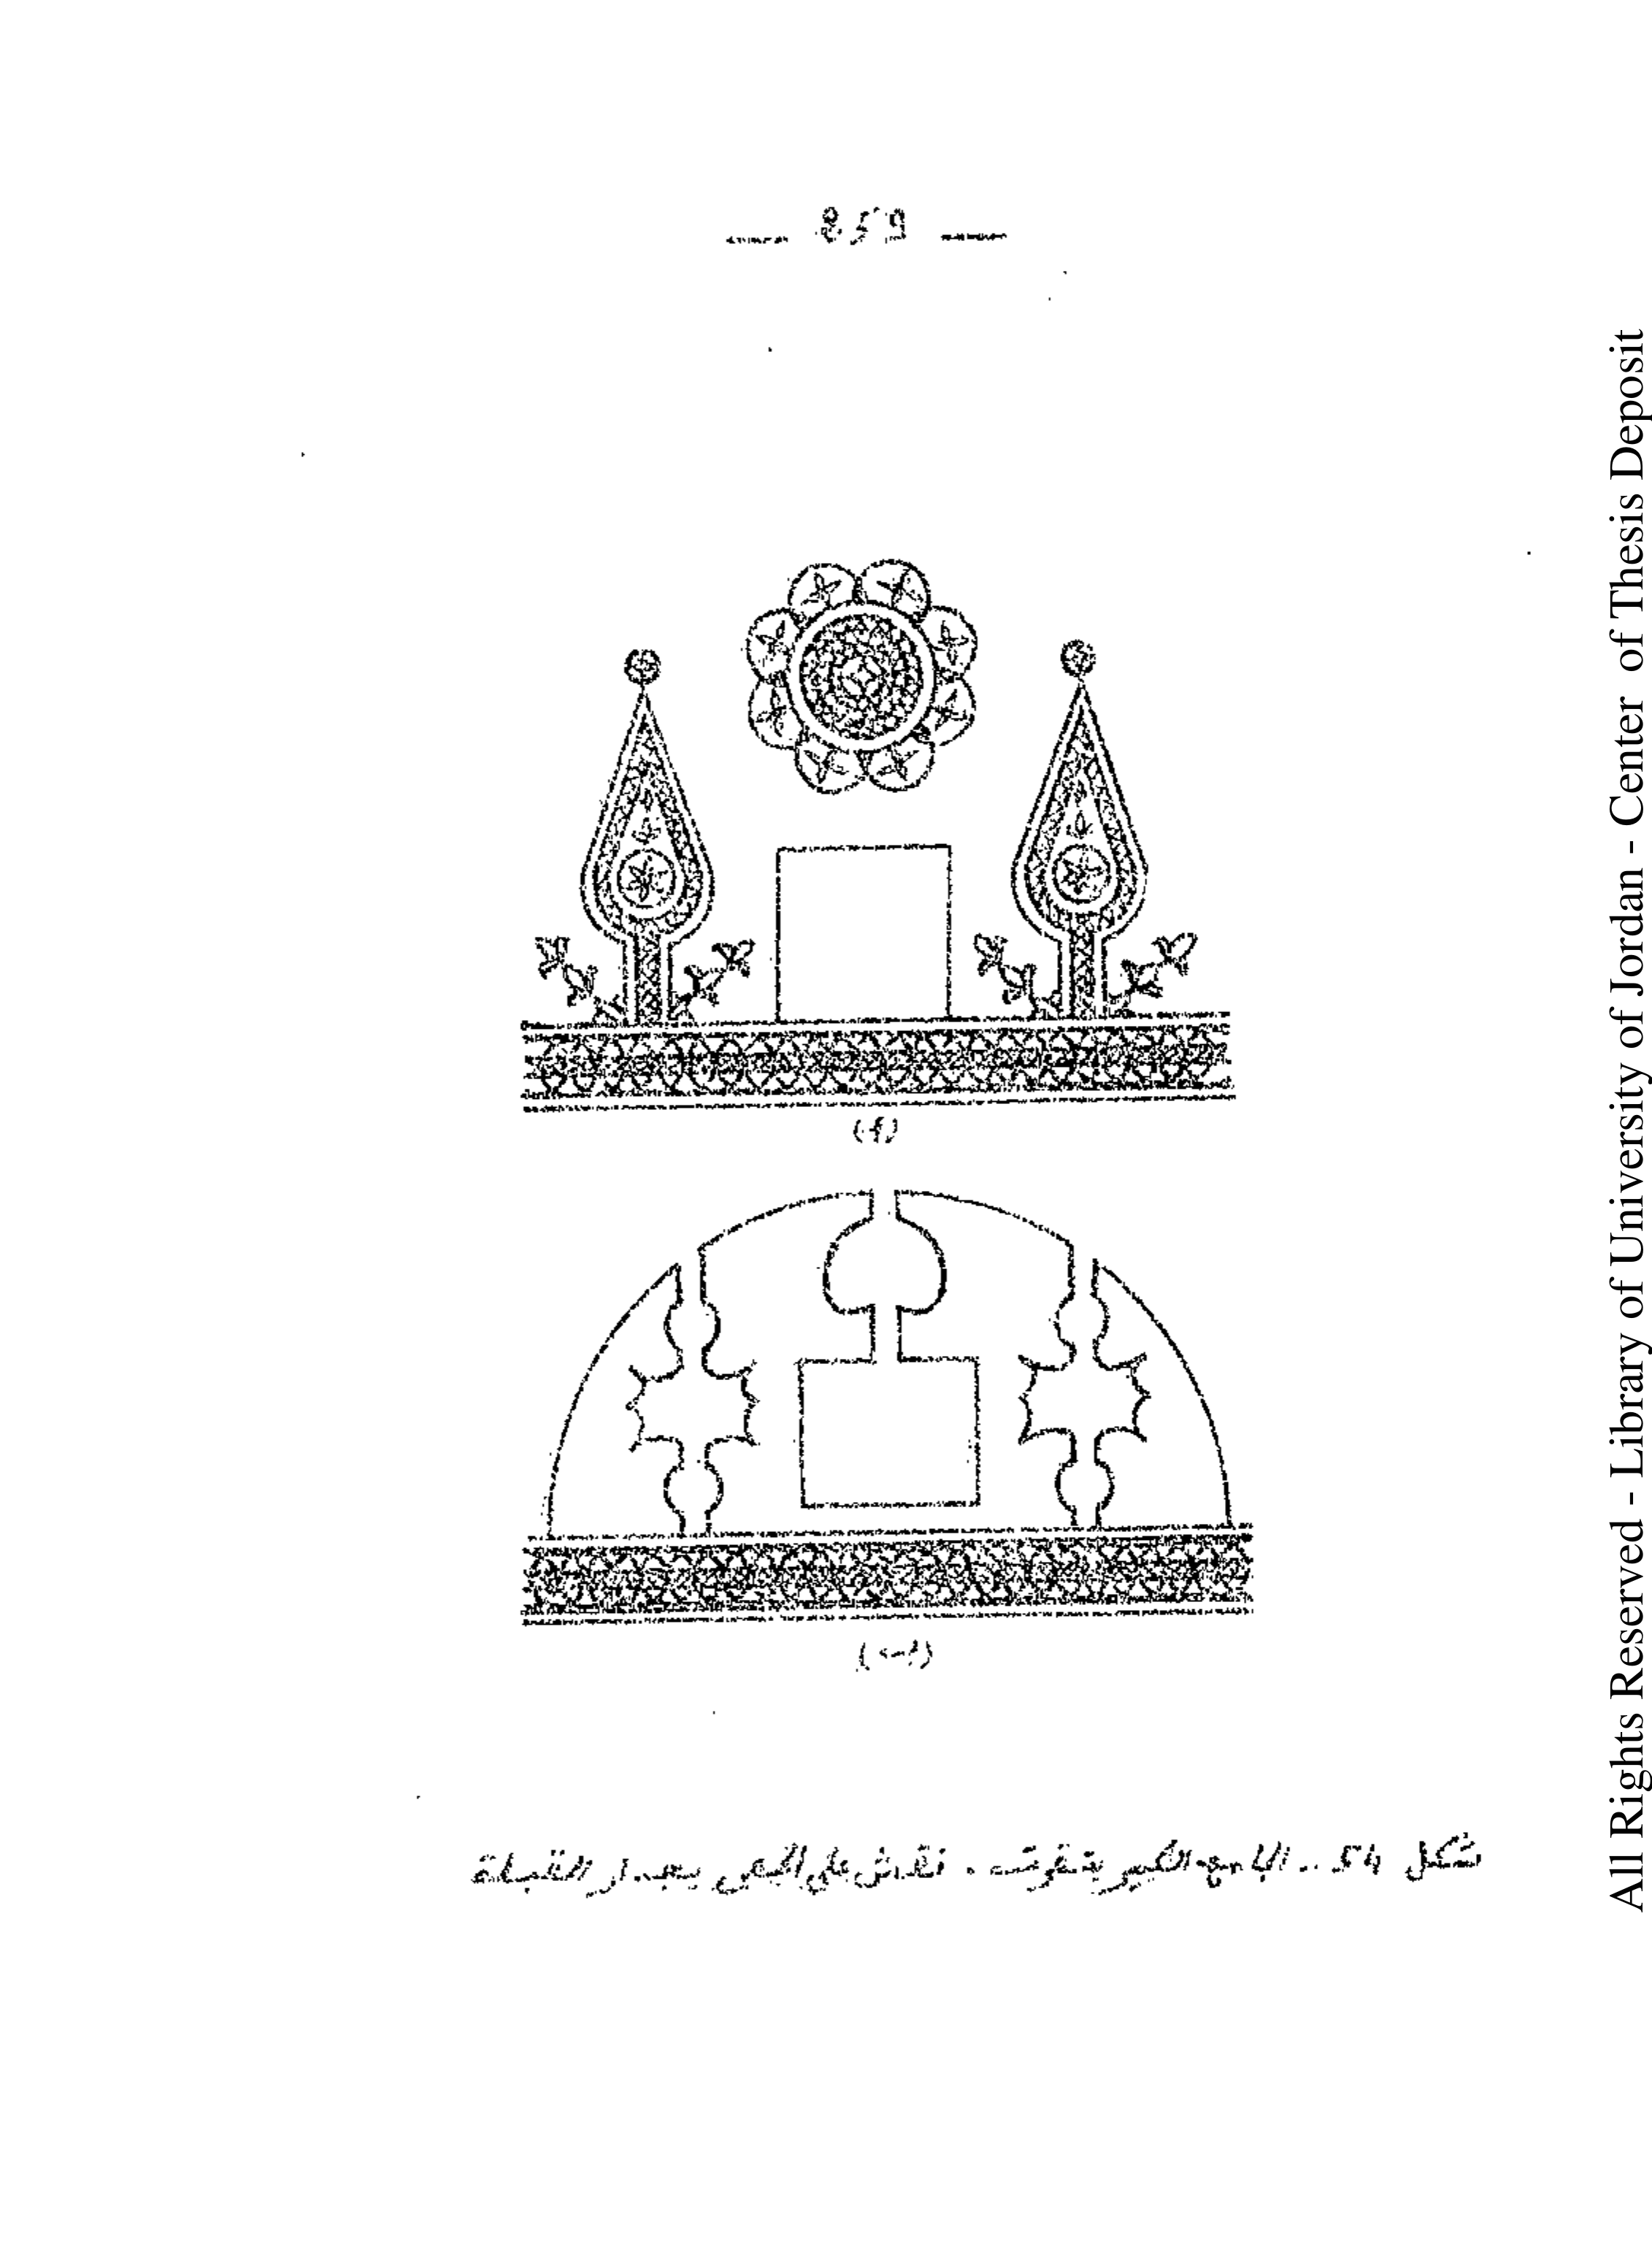 — 859 —
(أ)
(ب)
شكل 54 .. الجامع الكبير بتقرت . نقش على الجص بجدار القبلة
All Rights Reserved - Library of University of Jordan - Center of Thesis Deposit